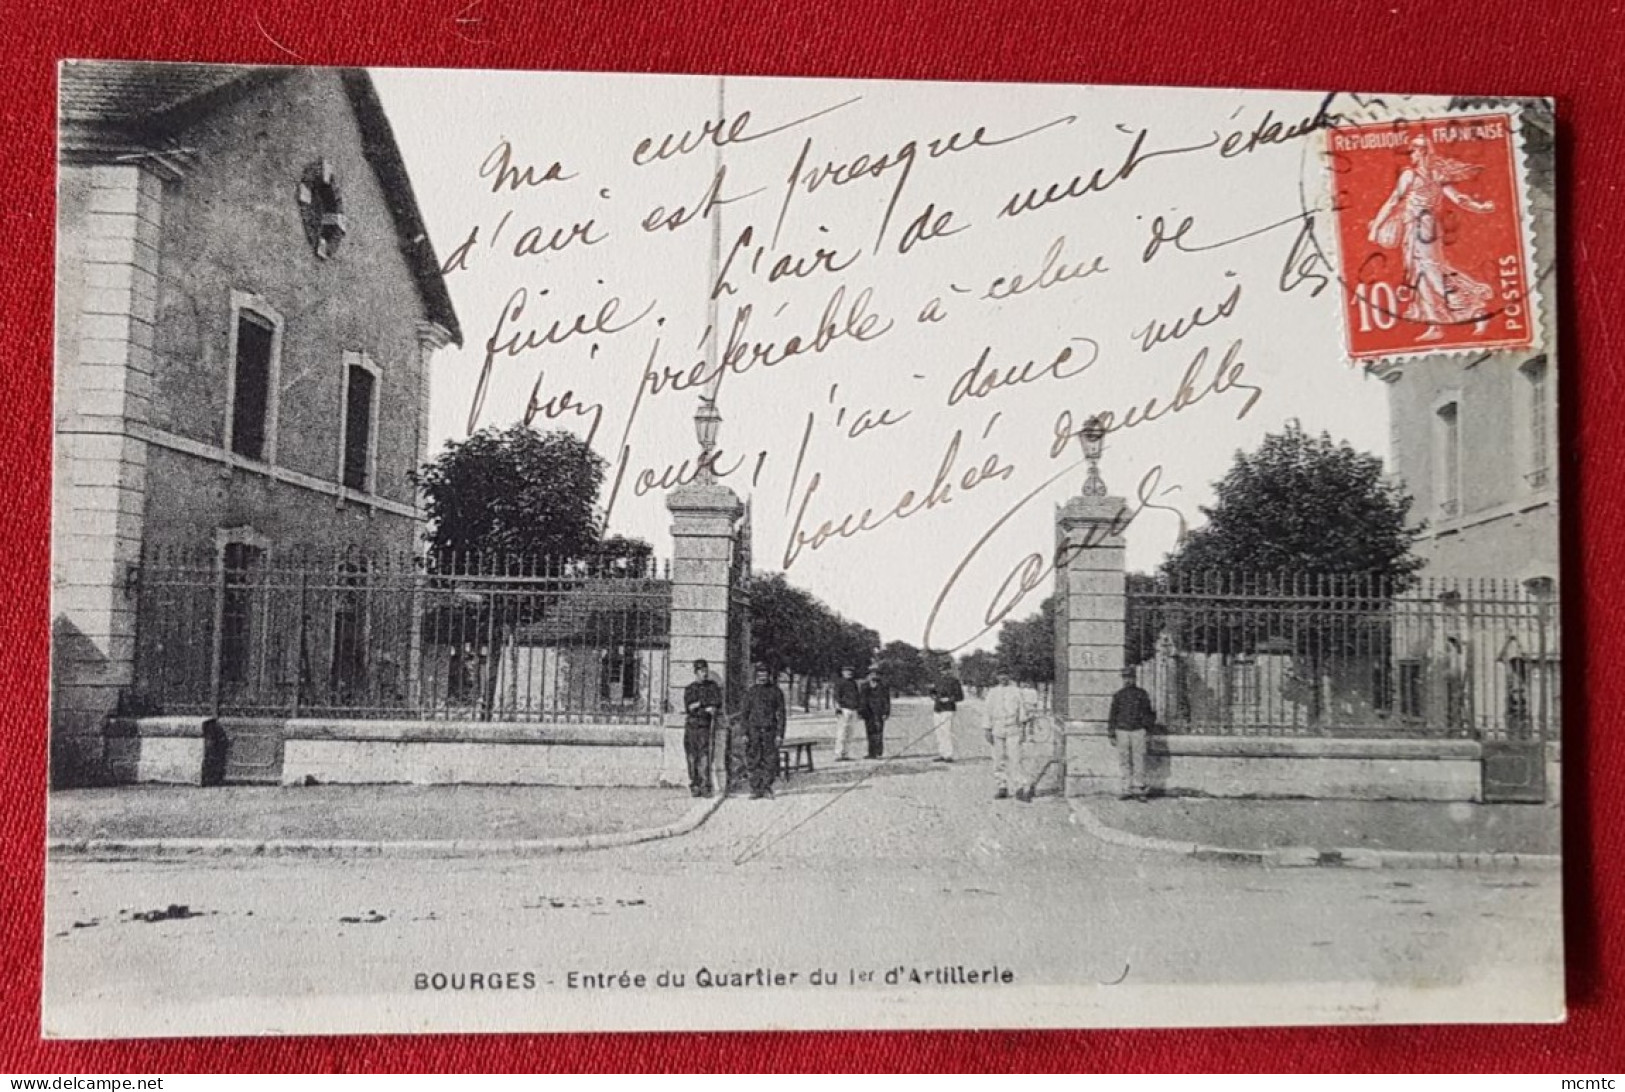 Ma cure
d'air est presque
finie. L'air de nuit étant
préférable à celui de
jour, j'ai donc mis les
bouchées doubles
RÉPUBLIQUE FRANÇAISE
10c
POSTES
09
BOURGES - Entrée du Quartier du 1er d'Artillerie
mcmtc